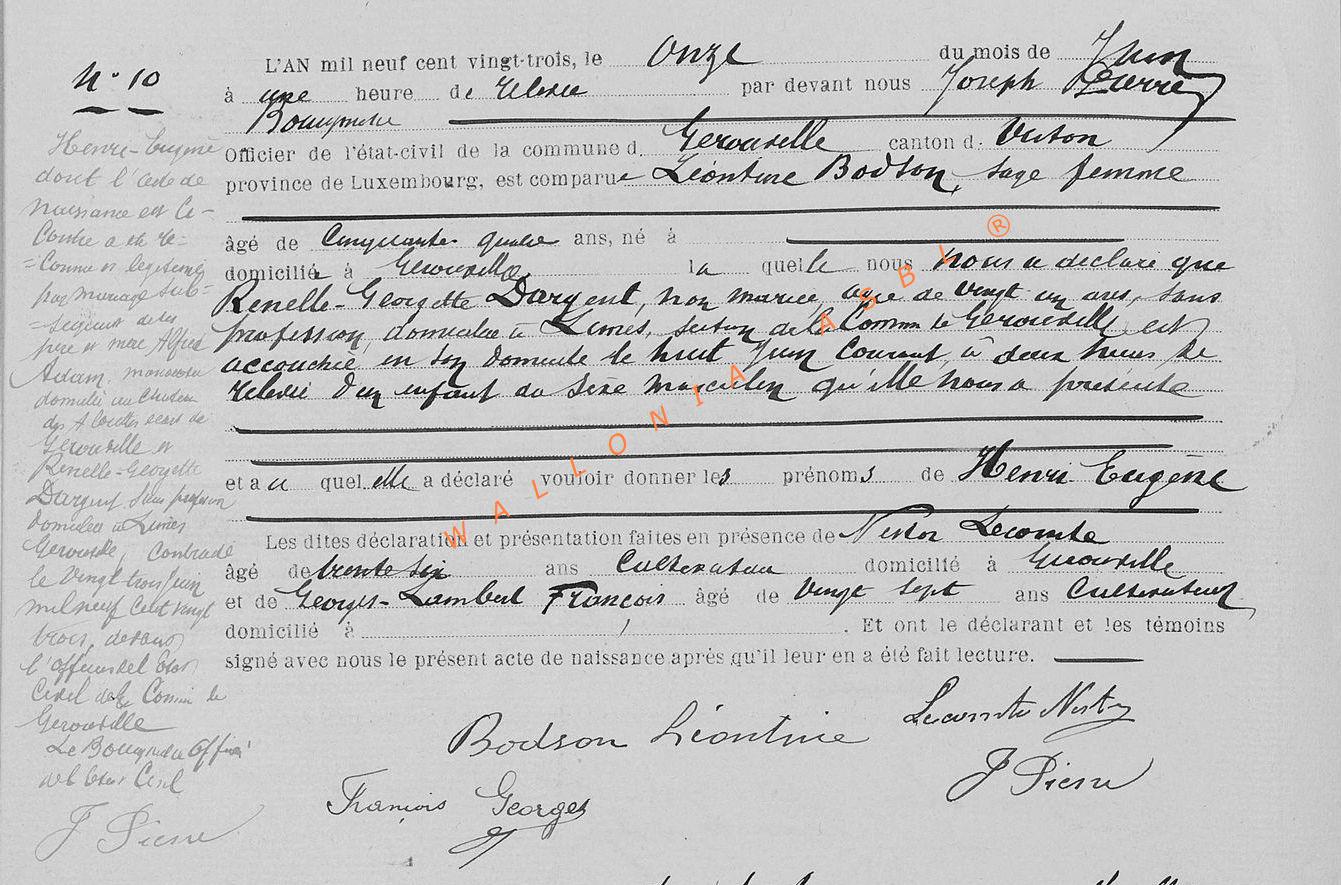 N° 10
L'AN mil neuf cent vingt-trois, le Onze du mois de Juin
à une heure de relevée par devant nous Joseph Pierre
Bourgmestre
Officier de l'état-civil de la commune d. Gérouville canton d. Virton
province de Luxembourg, est comparue Léontine Bodson, sage femme
âgé de Cinquante quatre ans, né à
domiciliée à Gérouville laquelle nous nous a déclaré que
Renelle-Georgette Dargent, non mariée, agée de vingt un ans, sans
profession, domiciliée à Limes, section de la Commune de Gérouville, est
accouchée en son domicile le huit Juin Courant, à deux heures de
relevée d'un enfant du sexe masculin qu'elle nous a présenté
et au quel elle a déclaré vouloir donner les prénoms de Henri-Eugène
Les dites déclaration et présentation faites en présence de Nestor Lecomte
âgé de trente six ans Cultivateur domicilié à Gérouville
et de Georges-Lambert François âgé de vingt sept ans Cultivateur
domicilié à . Et ont le déclarant et les témoins
signé avec nous le présent acte de naissance après qu'il leur en a été fait lecture.
Bodson Léontine
Lecomte Nestor
François Georges
J Pierre
Henri-Eugène
dont l'acte de
naissance est Ci-
Contre a été re-
=connu et légitimé
par mariage sub-
=séquent de ses
père et mère Alfred
Adam, manoeuvre
domicilié au Chateau
des Alouettes écart de
Gérouville et
Renelle-Georgette
Dargent sans profession
domiciliée à Limes
Gérouville, contracté
le vingt-trois Juin
mil neuf Cent vingt
trois, devant
l'officier de l'état
Civil de la Commune de
Gérouville
Le Bourgmestre Officier
de l'état Civil
J Pierre
WALLONIA ASBL ®